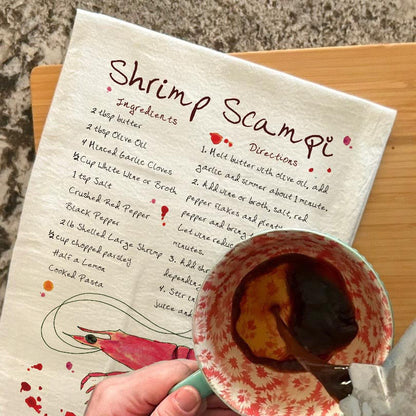 Shrimp Scampi
Ingredients
2 tbsp butter
2 tbsp Olive Oil
4 Minced Garlic Cloves
½ Cup White Wine or Broth
1 tsp Salt
Crushed Red Pepper
Black Pepper
2 lb Shelled Large Shrimp
½ cup chopped parsley
Half a Lemon
Cooked Pasta
Directions
1. Melt butter with olive oil, add
garlic and simmer about 1 minute.
2. Add wine or broth, salt, red
pepper flakes and
pepper and bring
Let wine reduce
minutes.
3. Add
4. Stir in
juice and